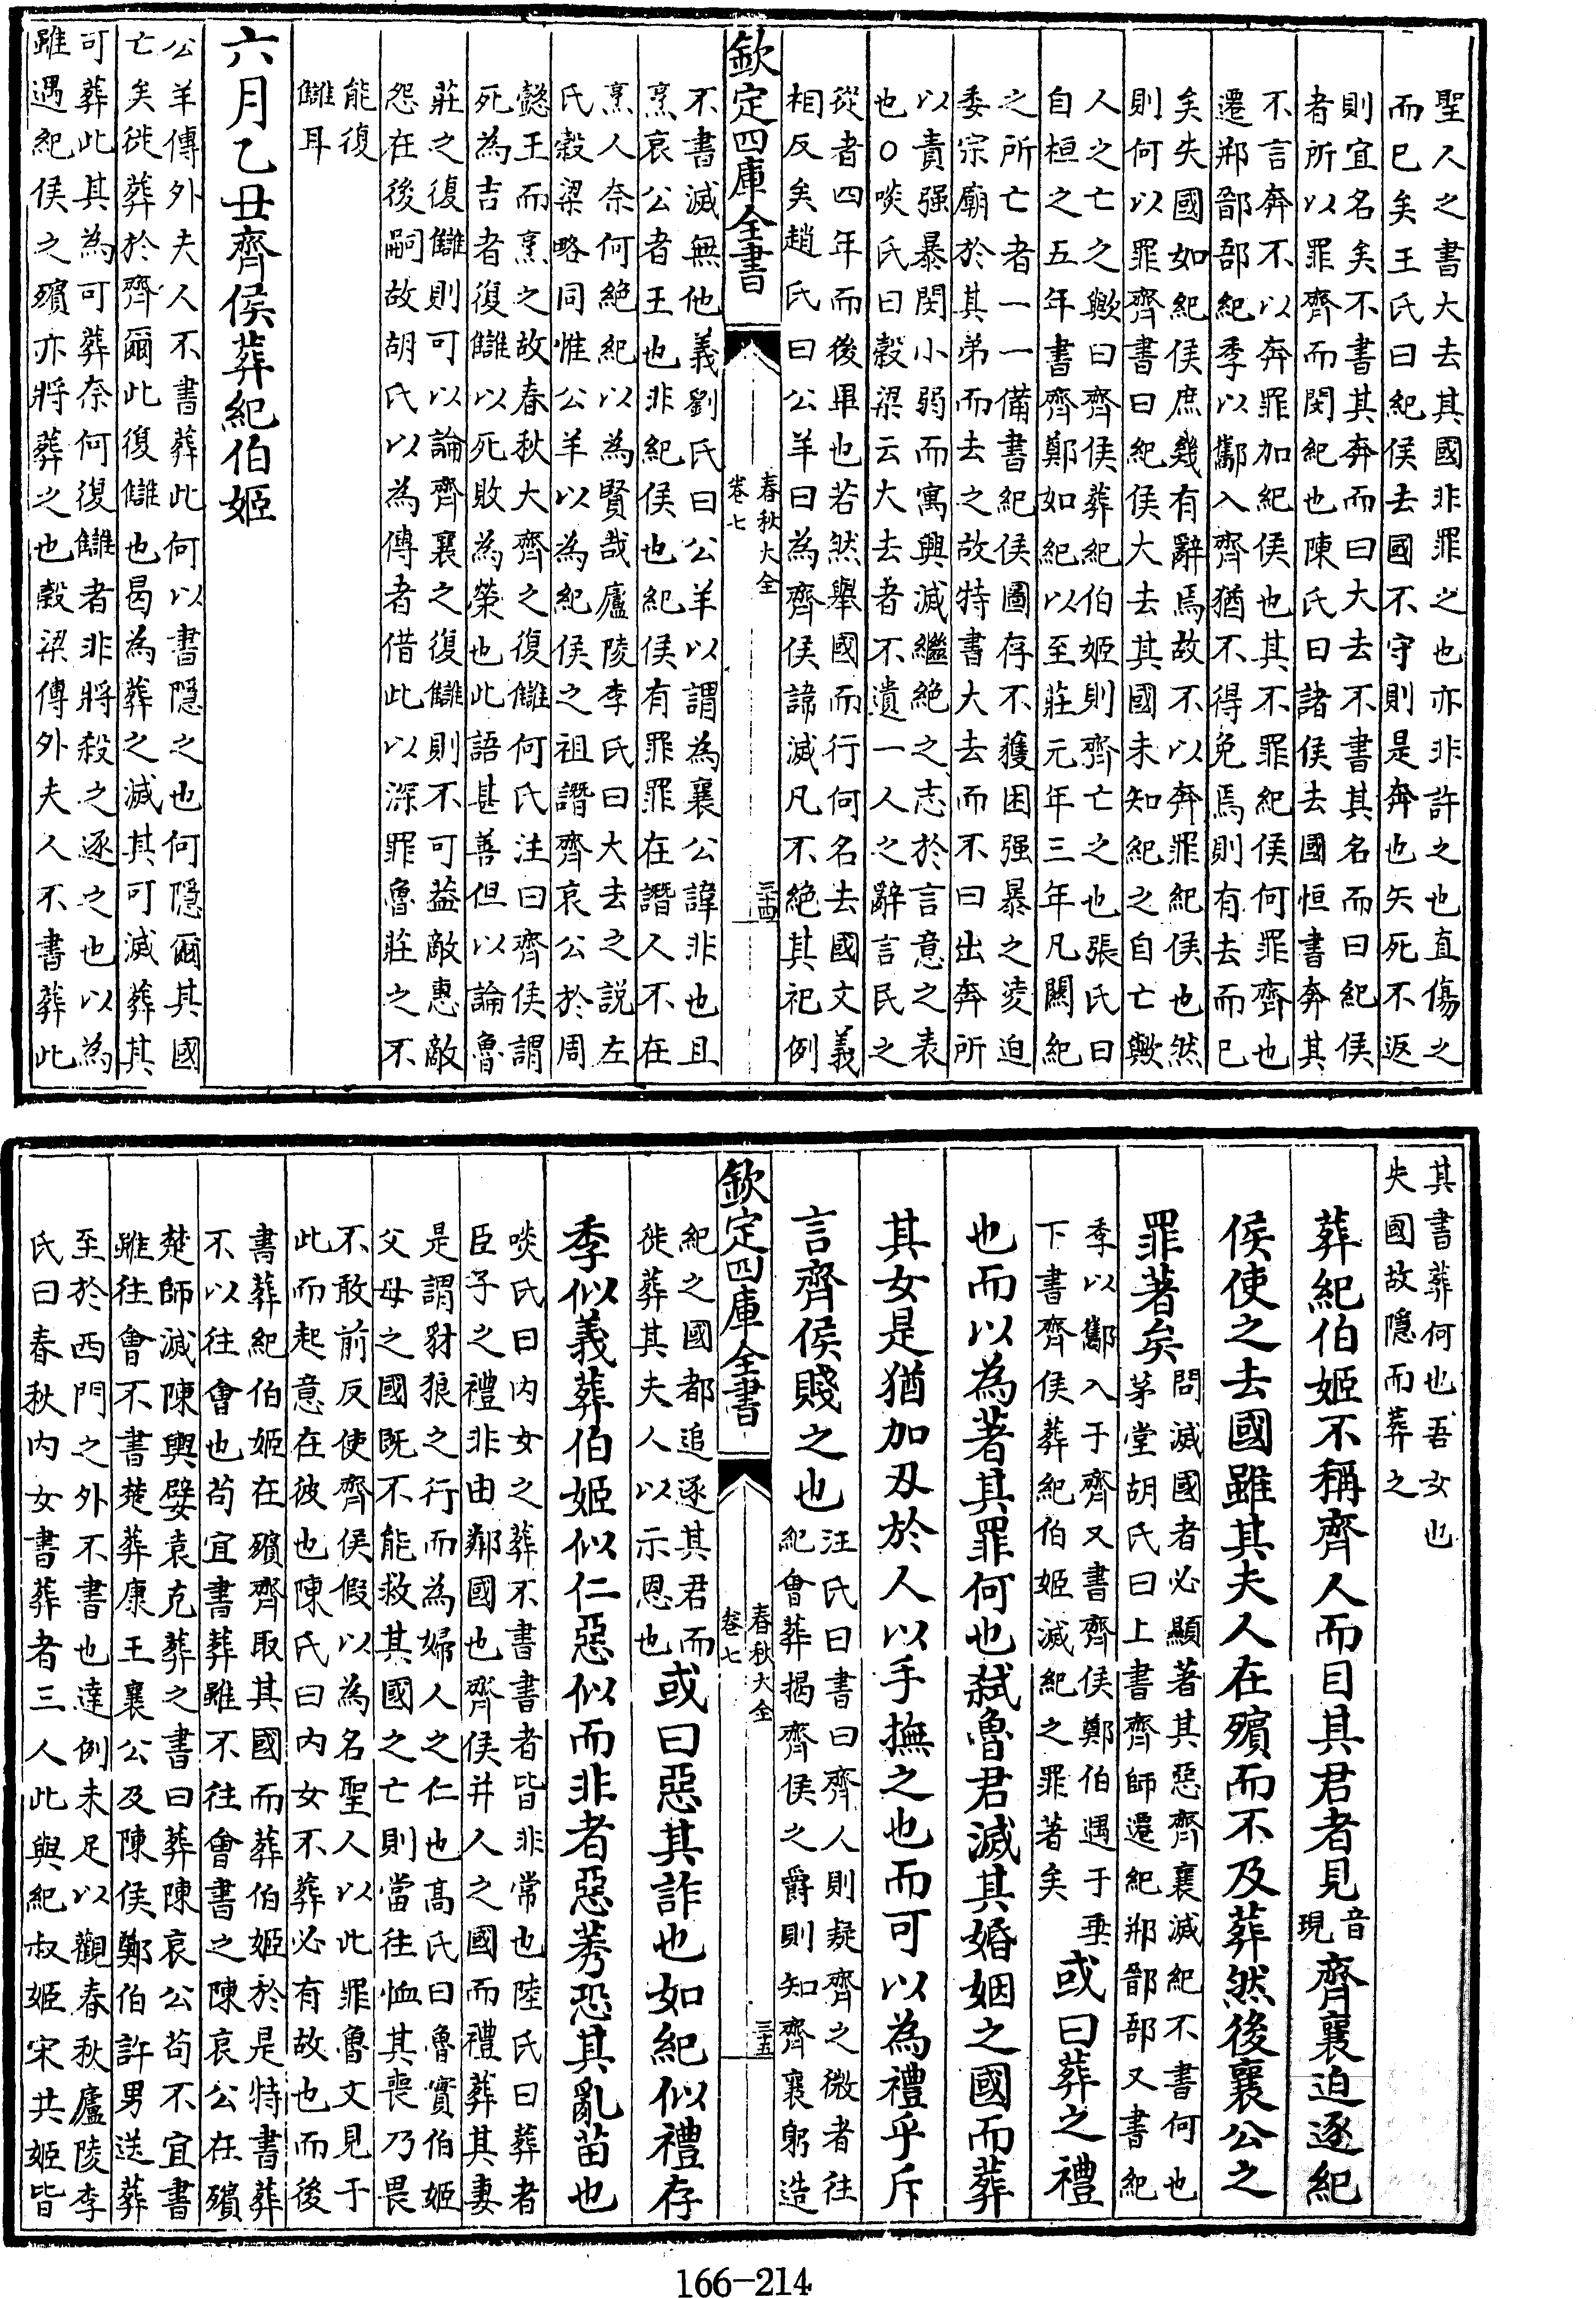 聖人之書大去其國非罪之也亦非許之也直傷之
而已矣王氏曰紀侯去國不守則是奔也矢死不返
則宜名矣不書其奔而曰大去不書其名而曰紀侯
者所以罪齊而閔紀也陳氏曰諸侯去國恒書奔其
不言奔不以奔罪加紀侯也其不罪紀侯何罪齊也
遷郱鄑郚紀季以酅入齊猶不得免焉則有去而已
矣失國如紀侯庶幾有辭焉故不以奔罪紀侯也然
則何以罪齊書曰紀侯大去其國未知紀之自亡歟
人之亡之歟曰齊侯葬紀伯姬則齊亡之也張氏曰
自桓之五年書齊鄭如紀以至莊元年三年凡關紀
之所亡者一一備書紀侯圖存不獲困强暴之凌迫
委宗廟於其弟而去之故特書大去而不曰出奔所
以責强暴閔小弱而寓興滅繼絶之志於言意之表
也○啖氏曰穀梁云大去者不遺一人之辭言民之
從者四年而後畢也若然舉國而行何名去國文義
相反矣趙氏曰公羊曰為齊侯諱滅凡不絶其祀例
欽定四庫全書
春秋大全
卷七
三十四
不書滅無他義劉氏曰公羊以謂為襄公諱非也且
烹哀公者王也非紀侯也紀侯有罪罪在譖人不在
烹人奈何絶紀以為賢哉廬陵李氏曰大去之説左
氏穀梁略同惟公羊以為紀侯之祖譖齊哀公於周
懿王而烹之故春秋大齊之復讎何氏注曰齊侯謂
死為吉者復讎以死敗為榮也此語甚善但以論魯
莊之復讎則可以論齊襄之復讎則不可葢敵惠敵
怨在後嗣故胡氏以為傳者借此以深罪魯莊之不
能復
讎耳
六月乙丑齊侯葬紀伯姬
公羊傳外夫人不書葬此何以書隱之也何隱爾其國
亡矣徙葬於齊爾此復讎也曷為葬之滅其可滅葬其
可葬此其為可葬奈何復讎者非將殺之逐之也以為
雖遇紀侯之殯亦將葬之也穀梁傳外夫人不書葬此
其書葬何也吾女也
失國故隱而葬之
葬紀伯姬不稱齊人而目其君者見音現齊襄迫逐紀
侯使之去國雖其夫人在殯而不及葬然後襄公之
罪著矣問滅國者必顯著其惡齊襄滅紀不書何也
茅堂胡氏曰上書齊師遷紀郱鄑郚又書紀
季以酅入于齊又書齊侯鄭伯遇于垂
下書齊侯葬紀伯姬滅紀之罪著矣或曰葬之禮
也而以為著其罪何也弑魯君滅其婚姻之國而葬
其女是猶加刃於人以手撫之也而可以為禮乎斥
言齊侯賤之也汪氏曰書曰齊人則疑齊之微者往
紀會葬揭齊侯之爵則知齊襄躬造
欽定四庫全書
春秋大全
卷七
三十五
紀之國都追逐其君而
徙葬其夫人以示恩也或曰惡其詐也如紀似禮存
季似義葬伯姬似仁惡似而非者惡莠恐其亂苗也
啖氏曰内女之葬不書書者皆非常也陸氏曰葬者
臣子之禮非由鄰國也齊侯并人之國而禮葬其妻
是謂豺狼之行而為婦人之仁也高氏曰魯實伯姬
父母之國既不能救其國之亡則當往恤其喪乃畏
不敢前反使齊侯假以為名聖人以此罪魯文見于
此而起意在彼也陳氏曰内女不葬必有故也而後
書葬紀伯姬在殯齊取其國而葬伯姬於是特書葬
不以往會也苟宜書葬雖不往會書之陳哀公在殯
楚師滅陳輿嬖袁克葬之書曰葬陳哀公苟不宜書
雖往會不書楚葬康王襄公及陳侯鄭伯許男送葬
至於西門之外不書也達例未足以觀春秋廬陵李
氏曰春秋内女書葬者三人此與紀叔姬宋共姬皆
166-214